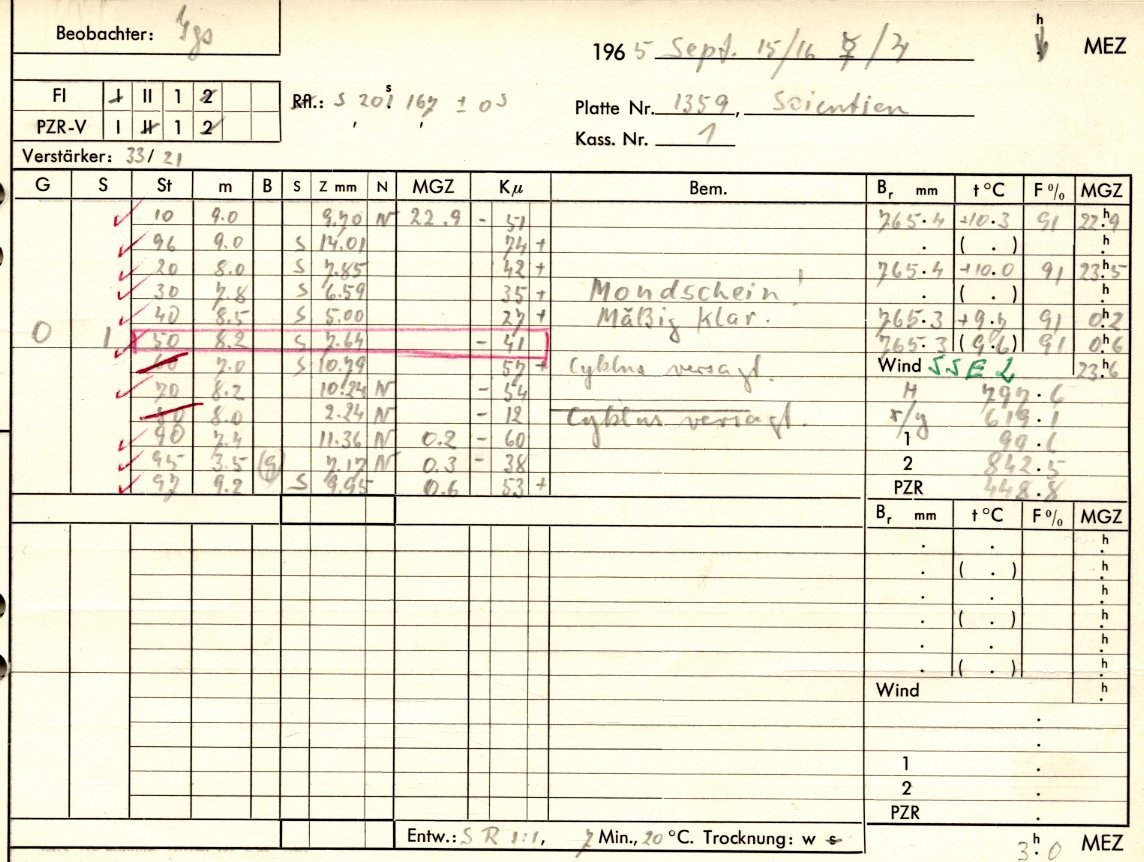 Beobachter:
1965 Sept. 15/16 ☿/♃ h MEZ
FI I II 1 2
PZR-V I II 1 2
Rfl.: S 201 s 167 ± 0s
Platte Nr. 1359,
Kass. Nr. 1
Verstärker: 33/21
G S St m B S Z mm N MGZ Kµ Bem. Br mm t °C F % MGZ
10 9.0 9.70 N 22.9 - 51 765.4 +10.3 91 22.h9
96 9.0 S 14.01 74 + . ( . ) h
20 8.0 S 7.85 42 + 765.4 +10.0 91 23.h5
30 7.8 S 6.59 35 + Mondschein! . ( . ) h
40 8.5 S 5.00 27 + Mäßig klar. 765.3 +9.7 91 0.h2
0 1 50 8.2 S 7.64 - 41 765.3 (9.6) 91 0.h6
60 7.0 S 10.79 57 + Cyklus versagt. Wind SSE 2 23.h6
70 8.2 10.24 N - 54 H 797.6
80 8.0 2.24 N - 12 Cyklus versagt. r/y 619.1
90 7.4 11.36 N 0.2 - 60 1 99.6
95 3.5 (g) 7.17 N 0.3 - 38 2 842.5
97 9.2 S 9.95 0.6 53 + PZR 448.8
Br mm t °C F % MGZ
. . h
. ( . ) h
. . h
. ( . ) h
. . h
. ( . ) h
Wind h
.
.
1 .
2 .
PZR .
Entw.: S R 1:1, 7 Min., 20 °C. Trocknung: w s 3.h0 MEZ